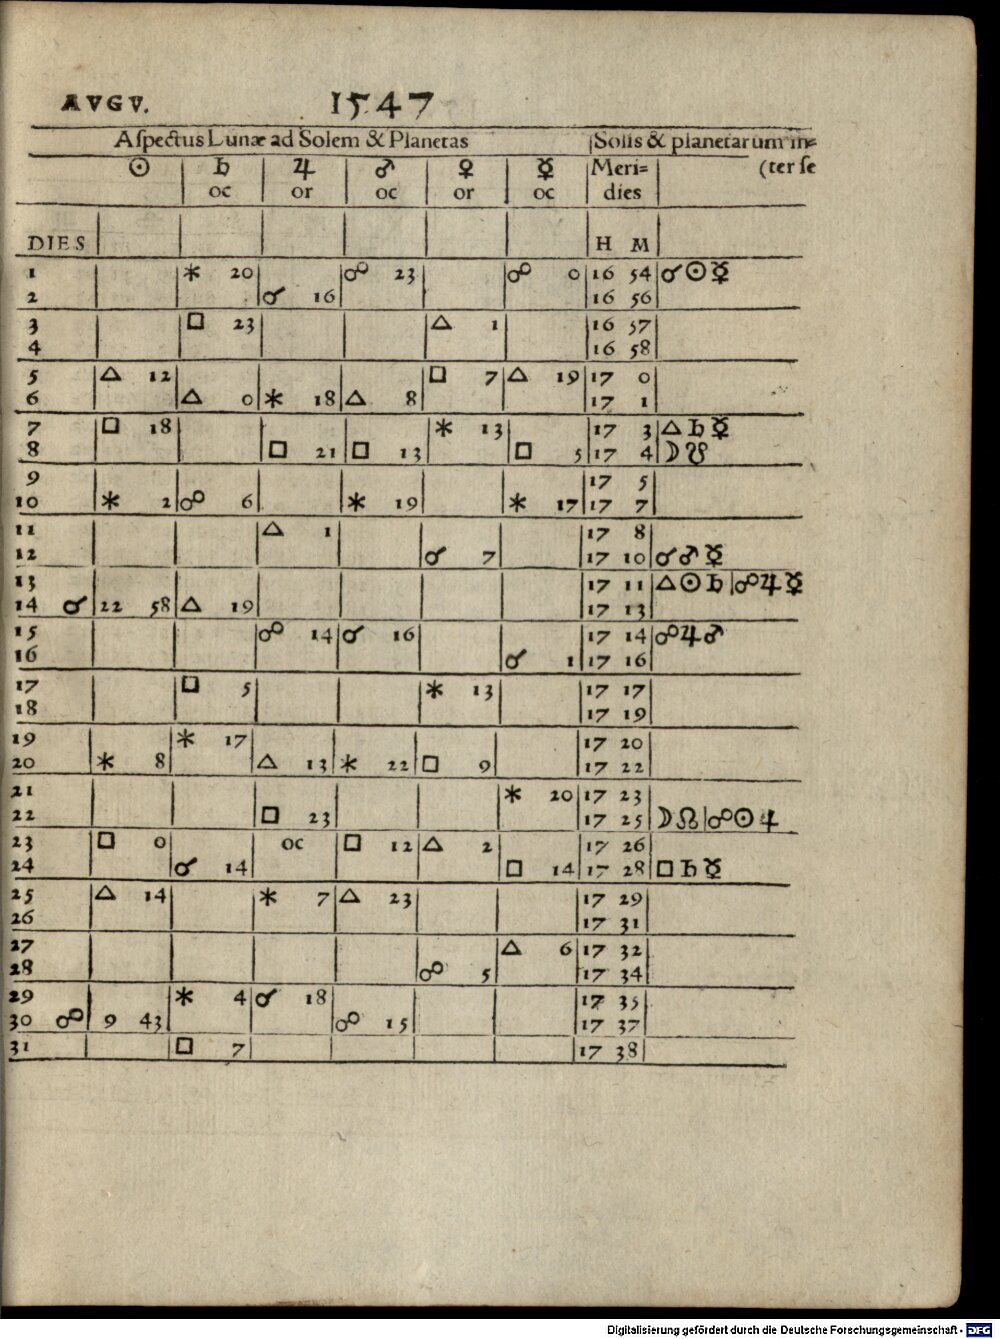 AVGV. 1547
Aſpectus Lunæ ad Solem & Planetas Solis & planetarum in=
☉ ♄ ♃ ♂ ♀ ☿ Meri= (ter ſe
oc or oc or oc dies
DIES H M
1 ⚹ 20 ☍ 23 ☍ 0 16 54 ☌☉☿
2 ☌ 16 16 56
3 □ 23 △ 1 16 57
4 16 58
5 △ 12 □ 7 △ 19 17 0
6 △ 0 ⚹ 18 △ 8 17 1
7 □ 18 ⚹ 13 17 3 △♄☿
8 □ 21 □ 13 □ 5 17 4 ☽☋
9 17 5
10 ⚹ 2 ☍ 6 ⚹ 19 ⚹ 17 17 7
11 △ 1 17 8
12 ☌ 7 17 10 ☌♂☿
13 17 11 △☉♄ ☍♃☿
14 ☌ 22 58 △ 19 17 13
15 ☍ 14 ☌ 16 17 14 ☍♃♂
16 ☌ 1 17 16
17 □ 5 ⚹ 13 17 17
18 17 19
19 ⚹ 17 17 20
20 ⚹ 8 △ 13 ⚹ 22 □ 9 17 22
21 ⚹ 20 17 23
22 □ 23 17 25 ☽☊ ☍☉♃
23 □ 0 oc □ 12 △ 2 17 26
24 ☌ 14 □ 14 17 28 □♄☿
25 △ 14 ⚹ 7 △ 23 17 29
26 17 31
27 △ 6 17 32
28 ☍ 5 17 34
29 ⚹ 4 ☌ 18 17 35
30 ☍ 9 43 ☍ 15 17 37
31 □ 7 17 38
Digitalisierung gefördert durch die Deutsche Forschungsgemeinschaft - DFG